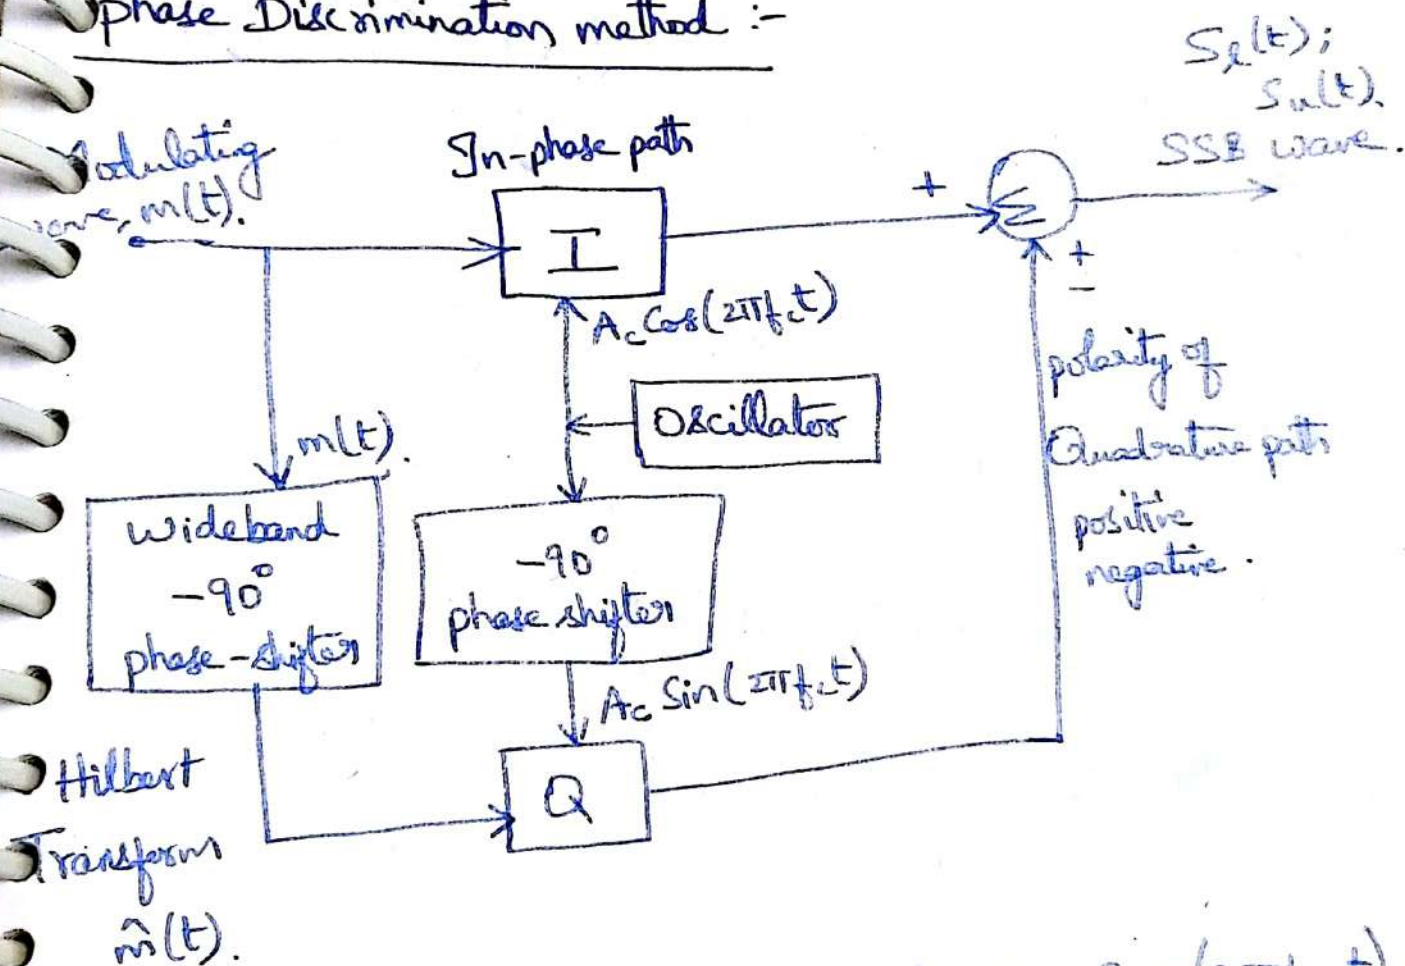 phase Discrimination method :-
S_l(t);
S_u(t).
SSB wave.
Modulating
wave, m(t).
In-phase path
I
+
Σ
+
-
A_c Cos(2πf_c t)
polarity of
Quadrature path
positive
negative.
Oscillator
m(t).
Wideband
-90°
phase-shifter
-90°
phase shifter
A_c Sin(2πf_c t)
Q
Hilbert
Transform
m̂(t).